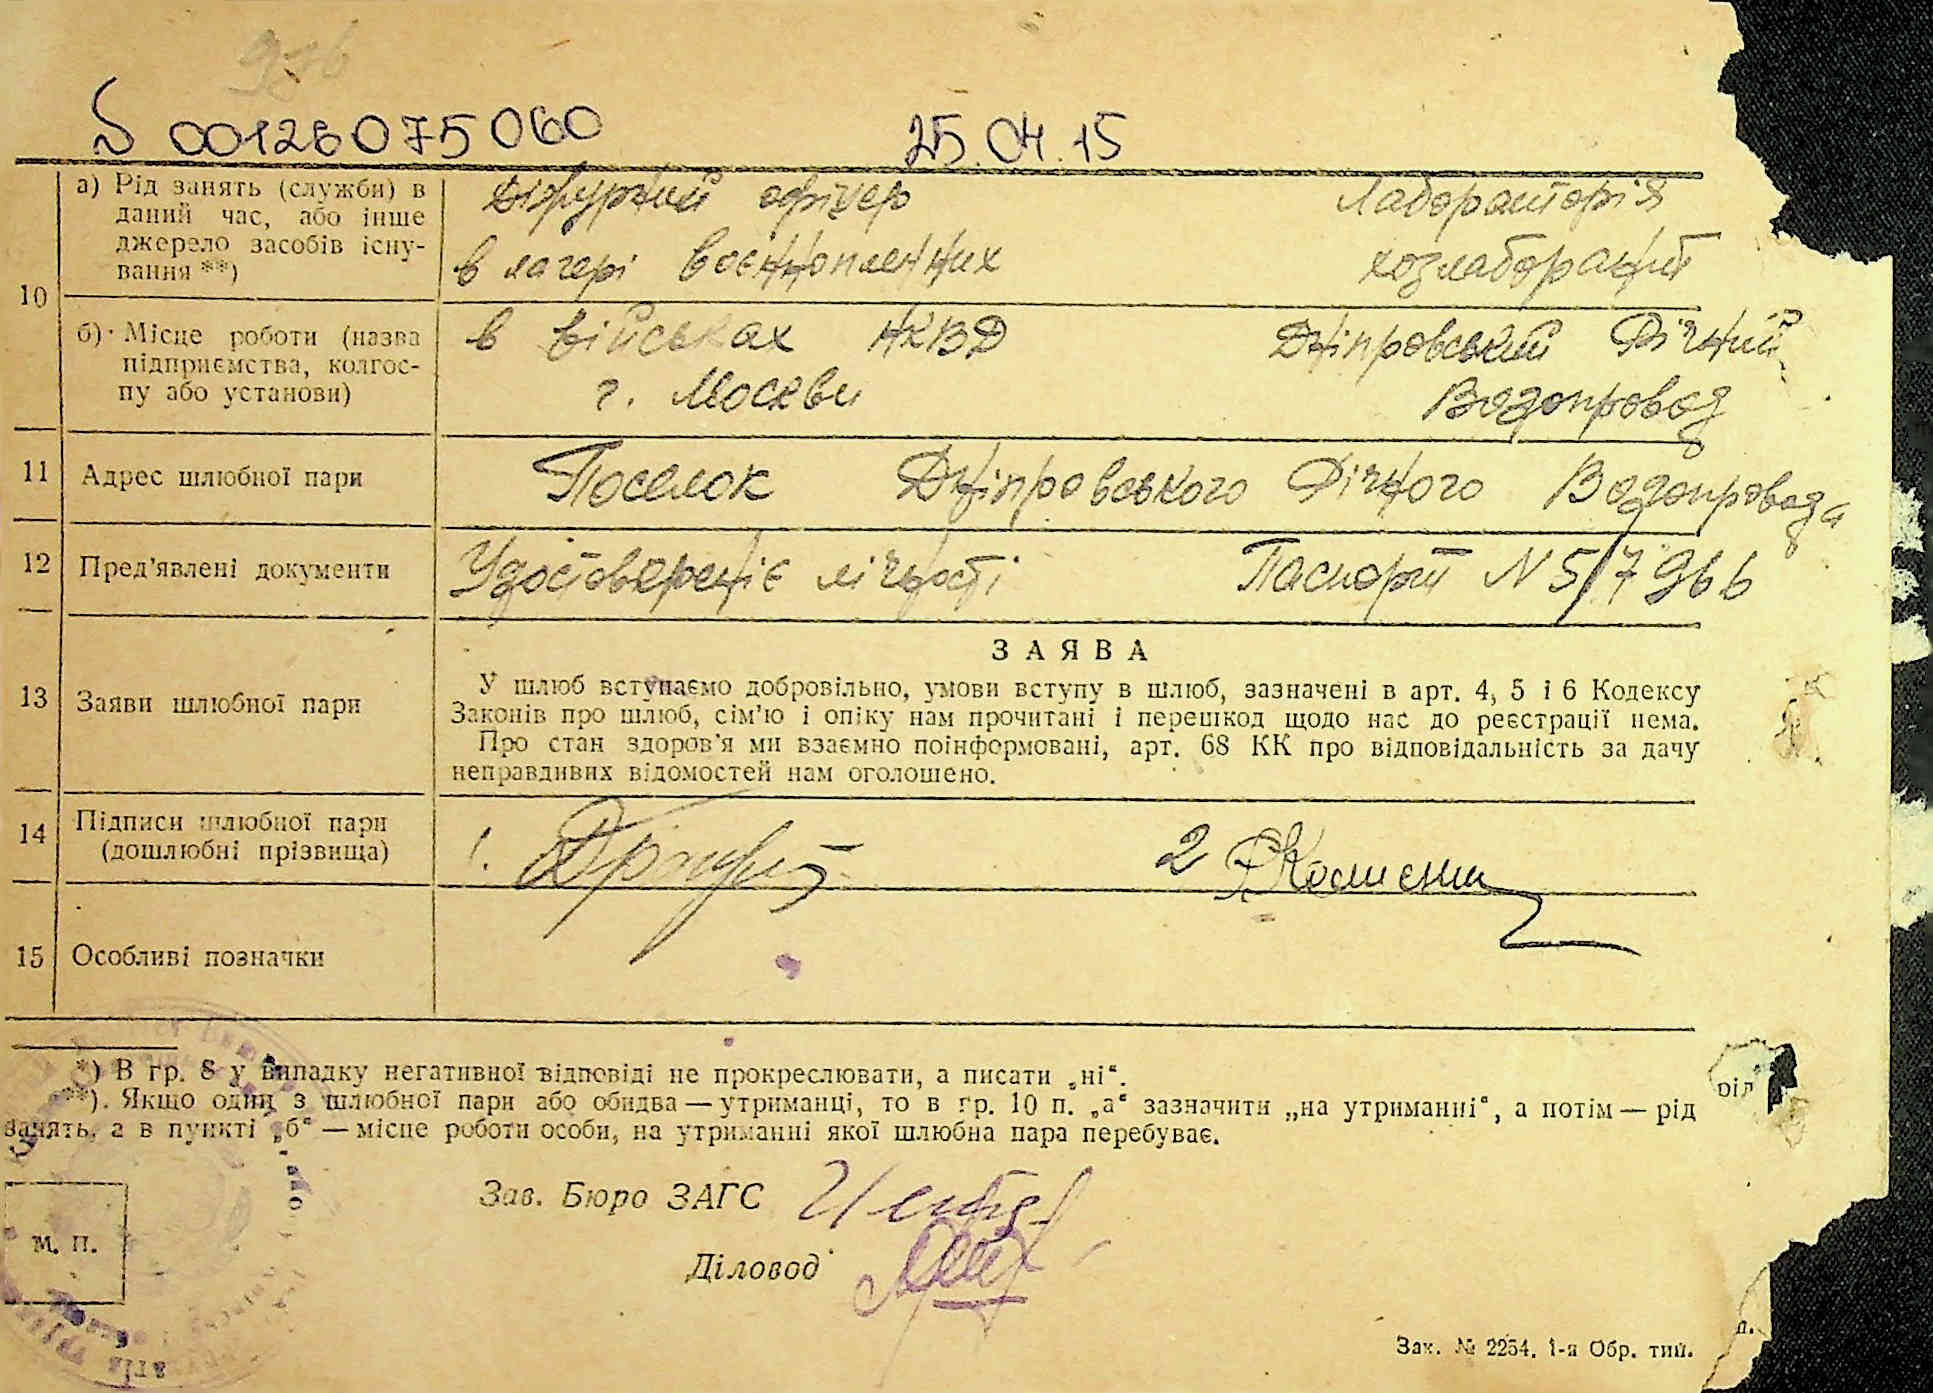 986
00126075060 25.04.15
10
а) Рід занять (служби) в
даний час, або інше
джерело засобів існу-
вання **)
Діжурний офіцер
в лагері воєннопленних
Лабораторія
б) Місце роботи (назва
підприємства, колгос-
пу або установи)
в військах НКВД
г. Москви
Дніпровський Річний
Водопровод
11 Адрес шлюбної пари Поселок Дніпровського Річного Водопровода
12 Пред'явлені документи Удостовереніє лічності Паспорт N 517966
13 Заяви шлюбної пари
ЗАЯВА
У шлюб вступаємо добровільно, умови вступу в шлюб, зазначені в арт. 4, 5 і 6 Кодексу
Законів про шлюб, сім'ю і опіку нам прочитані і перешкод щодо нас до реєстрації нема.
Про стан здоров'я ми взаємно поінформовані, арт. 68 КК про відповідальність за дачу
неправдивих відомостей нам оголошено.
14 Підписи шлюбної пари
(дошлюбні прізвища)
1. 2
15 Особливі позначки
*) В гр. 8 у випадку негативної відповіді не прокреслювати, а писати „ні“.
**). Якщо один з шлюбної пари або обидва — утриманці, то в гр. 10 п. „а“ зазначити „на утриманні“, а потім — рід
занять, а в пункті „б“ — місце роботи особи, на утриманні якої шлюбна пара перебуває.
ріл
Зав. Бюро ЗАГС
М. П.
Діловод
п.
Зак. № 2254. 1-я Обр. тип.